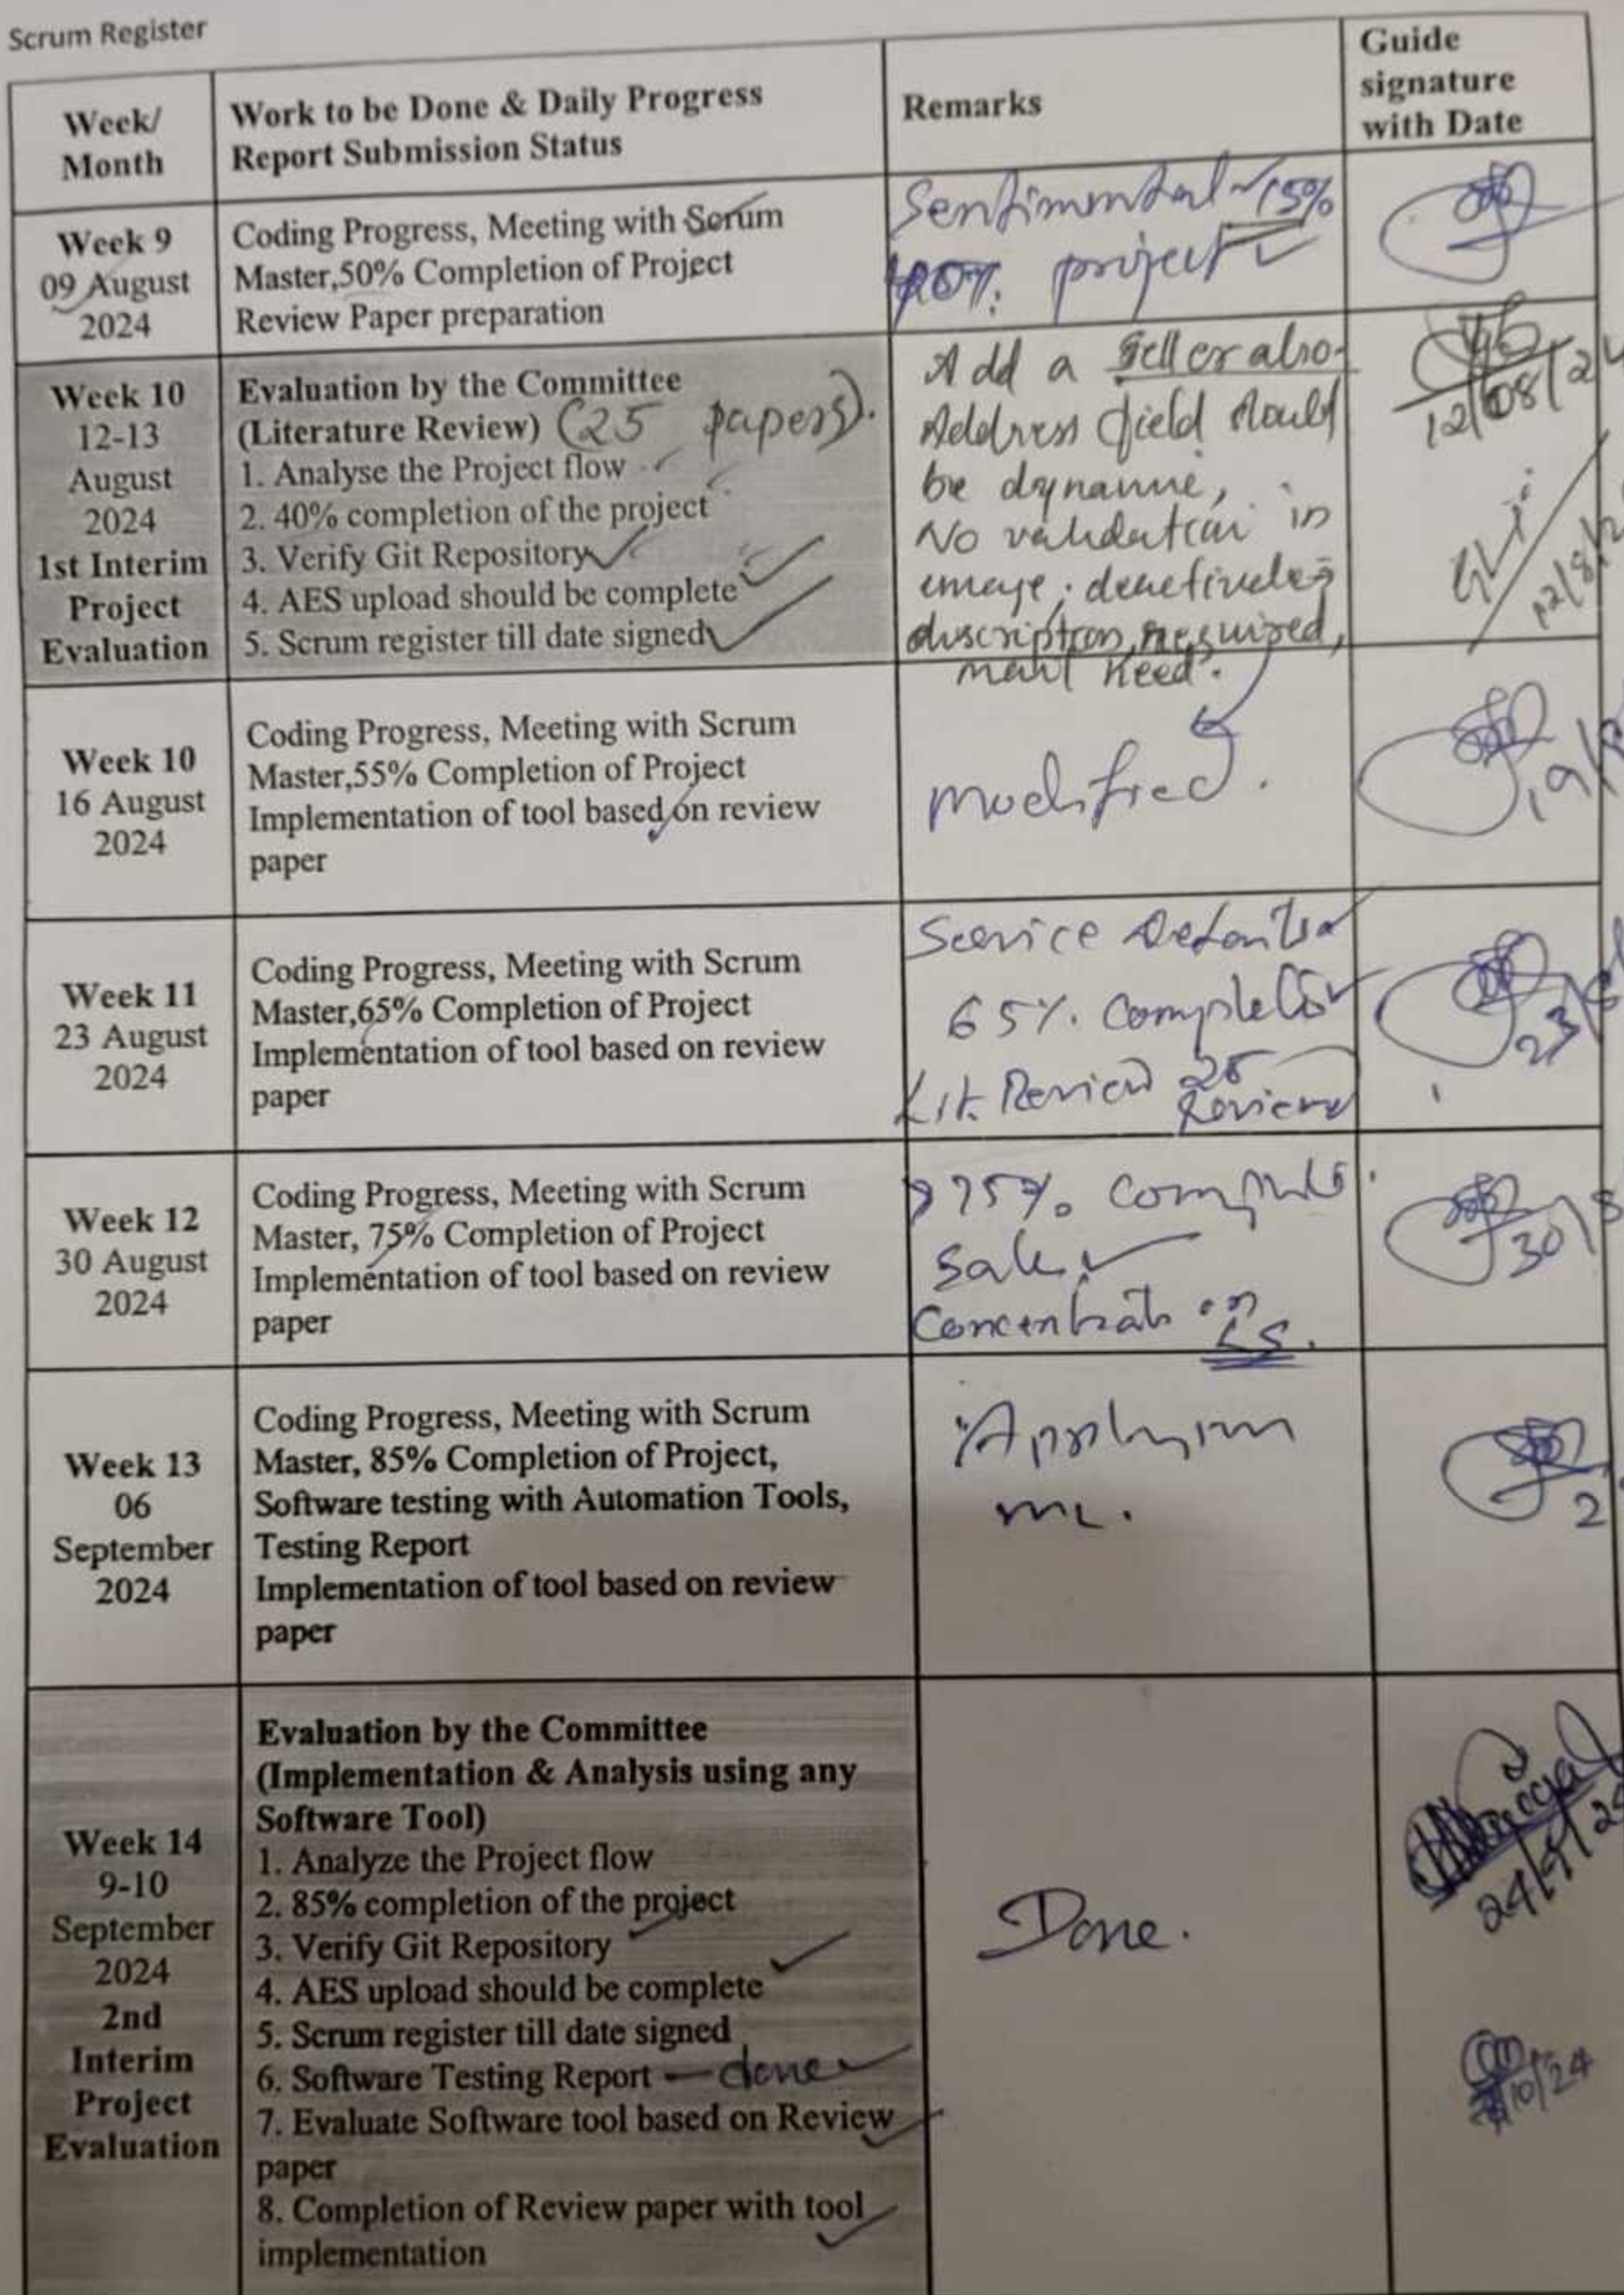 Scrum Register
Week/
Month
Work to be Done & Daily Progress
Report Submission Status
Remarks
Guide
signature
with Date
Week 9
09 August
2024
Coding Progress, Meeting with Scrum
Master,50% Completion of Project
Review Paper preparation
Sentimental 15%
project
Week 10
12-13
August
2024
1st Interim
Project
Evaluation
Evaluation by the Committee
(Literature Review) (25 papers).
1. Analyse the Project flow
2. 40% completion of the project
3. Verify Git Repository
4. AES upload should be complete
5. Scrum register till date signed
Add a Seller also
Address field should
be dynamic,
No validation in
image,
description required,
need.
12/08/24
12/8/2
Week 10
16 August
2024
Coding Progress, Meeting with Scrum
Master,55% Completion of Project
Implementation of tool based on review
paper
modified.
19/
Week 11
23 August
2024
Coding Progress, Meeting with Scrum
Master,65% Completion of Project
Implementation of tool based on review
paper
Service Details
65% Completion
Lit. Review
23/8
Week 12
30 August
2024
Coding Progress, Meeting with Scrum
Master, 75% Completion of Project
Implementation of tool based on review
paper
75%
Concentrate on
LS.
30/8
Week 13
06
September
2024
Coding Progress, Meeting with Scrum
Master, 85% Completion of Project,
Software testing with Automation Tools,
Testing Report
Implementation of tool based on review
paper
Week 14
9-10
September
2024
2nd
Interim
Project
Evaluation
Evaluation by the Committee
(Implementation & Analysis using any
Software Tool)
1. Analyze the Project flow
2. 85% completion of the project
3. Verify Git Repository
4. AES upload should be complete
5. Scrum register till date signed
6. Software Testing Report - done
7. Evaluate Software tool based on Review
paper
8. Completion of Review paper with tool
implementation
Done.
24/9/24
/10/24